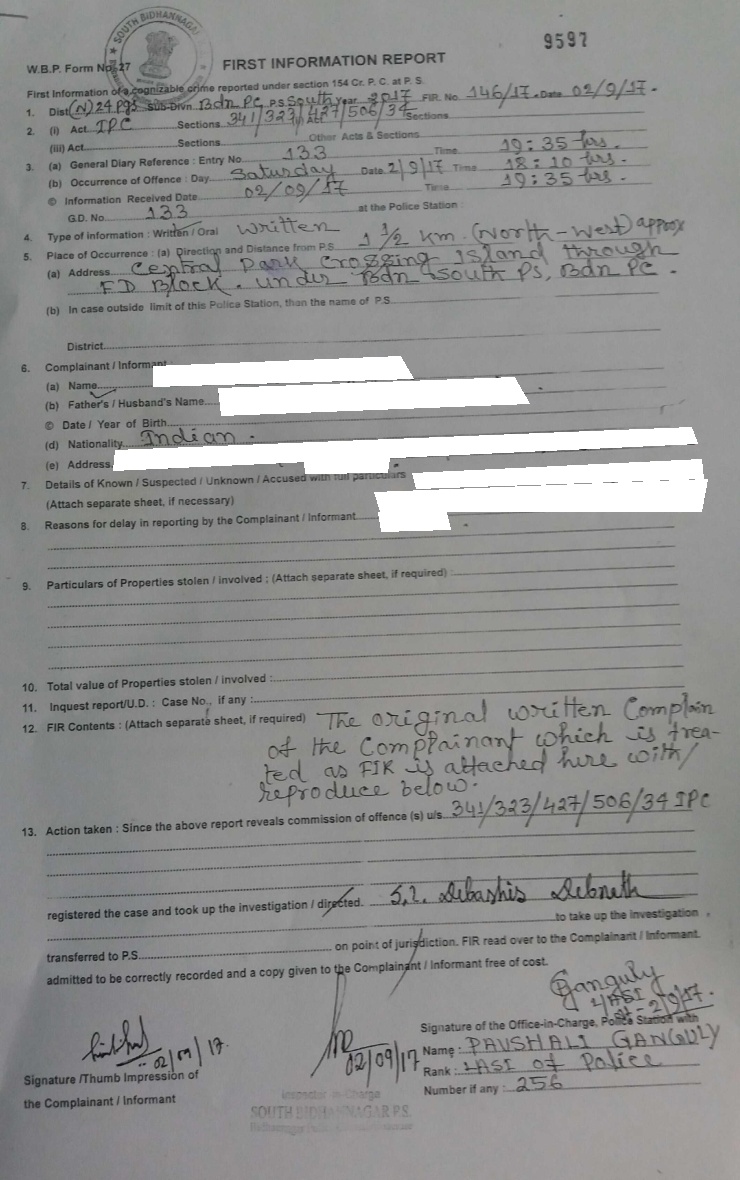 SOUTH BIDHANNAGAR
9597
W.B.P. Form No. 27
FIRST INFORMATION REPORT
First Information of a cognizable crime reported under section 154 Cr. P. C. at P. S.
1. Dist (N) 24 Pgs Sub-Divn. Bdn PC P.S South Year 2017 FIR. No. 146/17 Date 02/9/17.
2. (i) Act IPC Sections 341/323/427/506/34 Sections
(iii) Act Sections Other Acts & Sections
3. (a) General Diary Reference : Entry No. 133 Time 19:35 hrs.
(b) Occurrence of Offence : Day Saturday Date 2/9/17 Time 18:10 hrs.
© Information Received Date 02/09/17 Time 19:35 hrs.
G.D. No. 133 at the Police Station :
4. Type of information : Written / Oral Written
5. Place of Occurrence : (a) Direction and Distance from P.S. 1 1/2 km. (North-West) approx
(a) Address Central Park Crossing Island through
FD Block. under Bdn South PS, Bdn PC.
(b) In case outside limit of this Police Station, than the name of P.S.
District
6. Complainant / Informant
(a) Name
(b) Father's / Husband's Name
© Date / Year of Birth
(d) Nationality Indian.
(e) Address
7. Details of Known / Suspected / Unknown / Accused with full particulars
(Attach separate sheet, if necessary)
8. Reasons for delay in reporting by the Complainant / Informant
9. Particulars of Properties stolen / involved ; (Attach separate sheet, if required)
10. Total value of Properties stolen / involved :
11. Inquest report/U.D. : Case No., if any :
12. FIR Contents : (Attach separate sheet, if required) The original written Complain
of the Complainant which is trea-
ted as FIR is attached here with/
reproduce below.
13. Action taken : Since the above report reveals commission of offence (s) u/s. 341/323/427/506/34 IPC
registered the case and took up the investigation / directed. S.I. Debashis Debnath
to take up the investigation
transferred to P.S. on point of jurisdiction. FIR read over to the Complainant / Informant.
admitted to be correctly recorded and a copy given to the Complainant / Informant free of cost.
Ganguly
LASI
2/9/17.
02/09/17.
02/09/17
Signature of the Office-in-Charge, Police Station with
Name : PAUSHALI GANGULY
Rank : LASI of Police
Number if any : 256
Signature /Thumb Impression of
the Complainant / Informant
Inspector-in-Charge
SOUTH BIDHANNAGAR P.S.